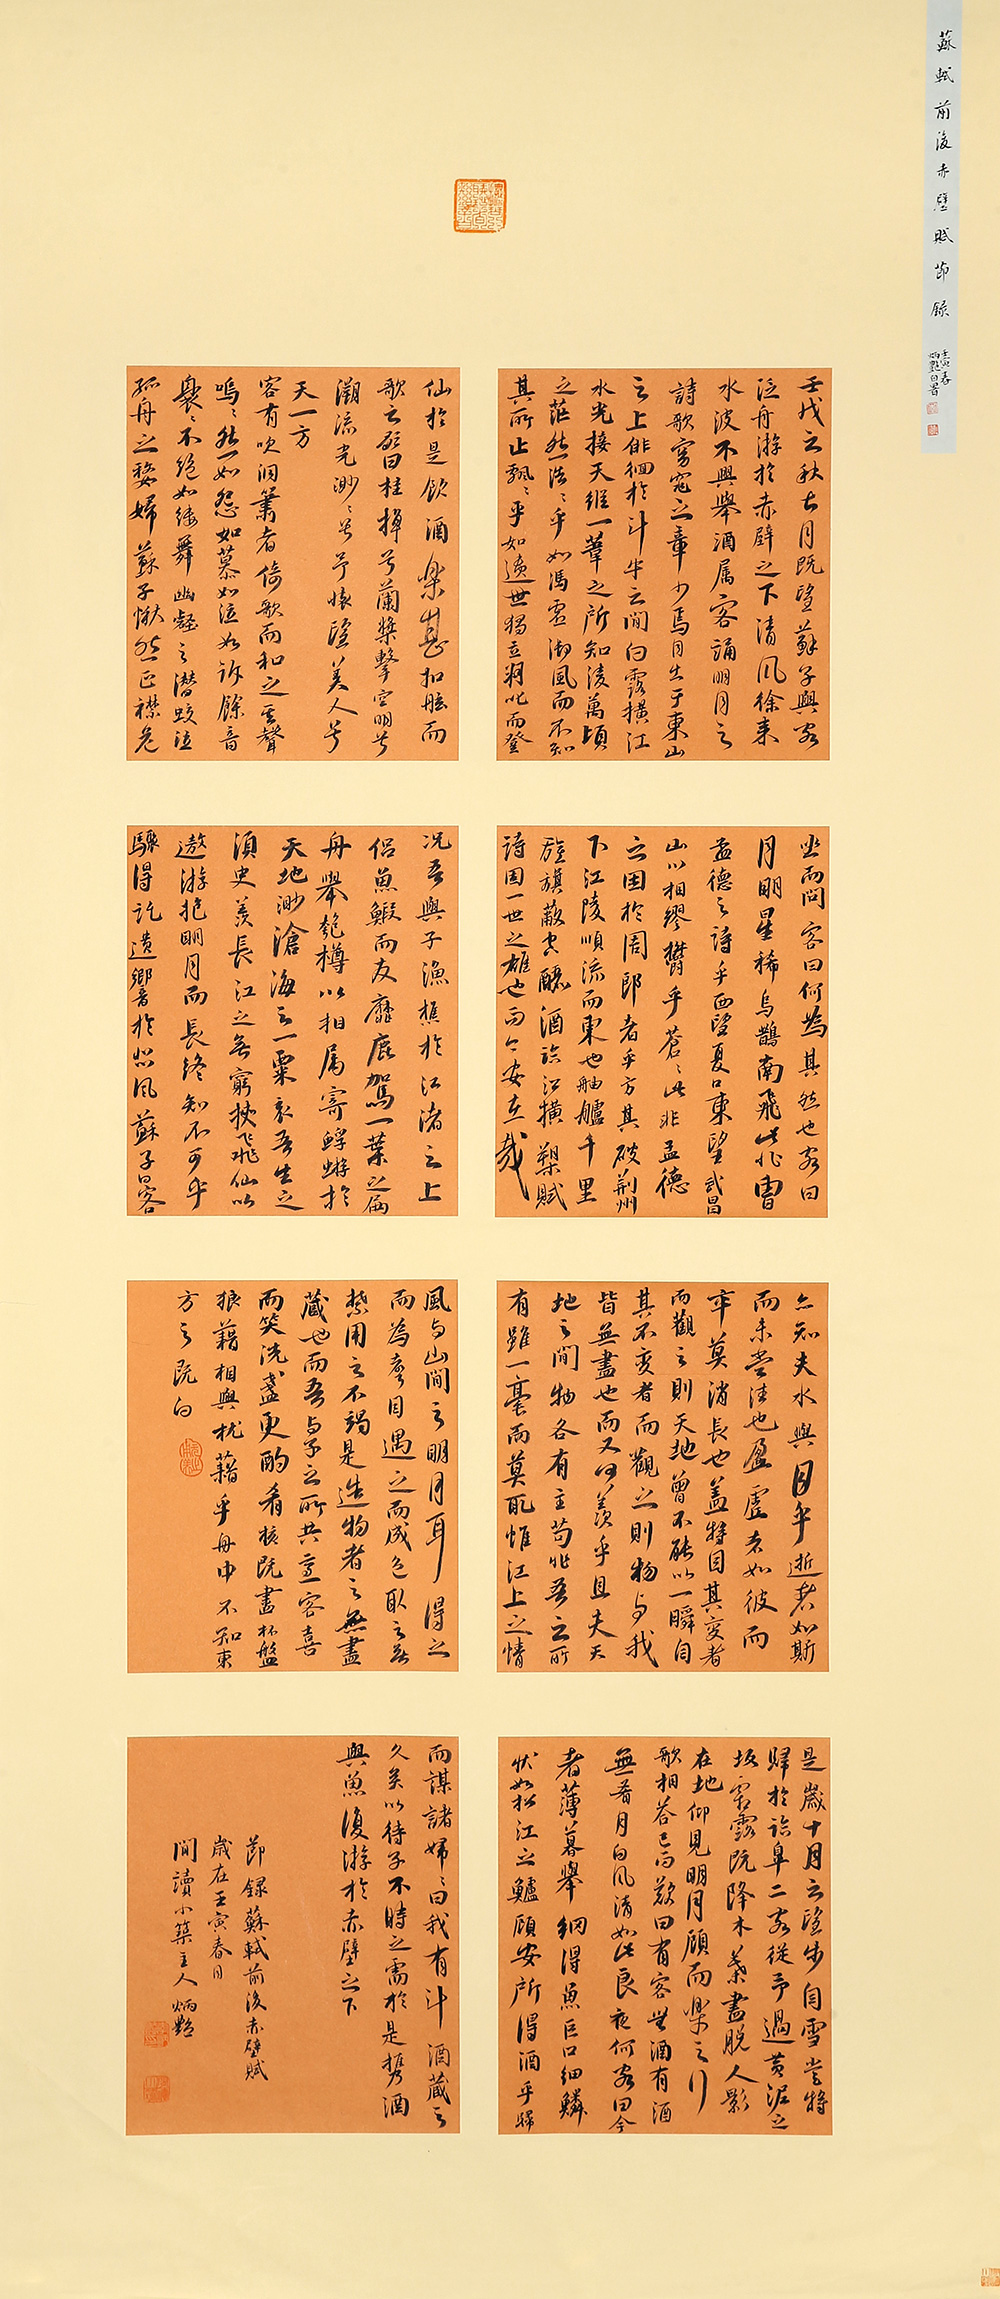 蘇軾前後赤壁賦節錄
壬寅春
炳艷自署
壬戌之秋七月既望蘇子與客
泛舟游於赤壁之下清風徐来
水波不興舉酒属客誦明月之
詩歌窈窕之章少焉月出于東山
之上徘徊於斗牛之間白露横江
水光接天縱一葦之所知淩萬頃
之茫然浩浩乎如馮虚御風而不知
其所止飄飄乎如遺世獨立羽化而登
仙於是飲酒樂甚扣舷而
歌之歌曰桂棹兮蘭槳擊空明兮
溯流光渺渺兮予懷望美人兮
天一方
客有吹洞簫者倚歌而和之其聲
嗚嗚然如怨如慕如泣如訴餘音
裊裊不絕如縷舞幽壑之潜蛟泣
孤舟之嫠婦蘇子愀然正襟危
坐而問客曰何為其然也客曰
月明星稀烏鵲南飛此非曹
孟德之詩乎西望夏口東望武昌
山川相缪鬱乎蒼蒼此非孟德
之困於周郎者乎方其破荆州
下江陵順流而東也舳艫千里
旌旗蔽空釃酒临江横槊賦
詩固一世之雄也而今安在哉
况吾與子漁樵於江渚之上
侣魚鰕而友麋鹿駕一葉之扁
舟舉匏樽以相属寄蜉蝣於
天地渺滄海之一粟哀吾生之
須臾羨長江之無窮挾飛仙以
遨游抱明月而長终知不可乎
驟得託遺響於悲風蘇子曰客
亦知夫水與月乎逝者如斯
而未尝往也盈虛者如彼而
卒莫消長也盖特自其变者
而觀之則天地曾不能以一瞬自
其不变者而觀之則物与我
皆無盡也而又何羨乎且夫天
地之間物各有主苟非吾之所
有雖一毫而莫取惟江上之清
風与山間之明月耳得之
而為聲目遇之而成色取之無
禁用之不竭是造物者之無盡
藏也而吾与子之所共适客喜
而笑洗盏更酌肴核既盡杯盤
狼藉相與枕藉乎舟中不知東
方之既白
是歲十月之望步自雪堂將
歸於临皋二客從予過黄泥之
坂霜露既降木葉盡脱人影
在地仰見明月顧而樂之行
歌相答已而歎曰有客無酒有酒
無肴月白風清如此良夜何客曰今
者薄暮舉網得魚巨口细鳞
状如松江之鱸顧安所得酒乎歸
而謀諸婦婦曰我有斗酒藏之
久矣以待子不時之需於是携酒
與魚復游於赤壁之下
節録蘇軾前後赤壁賦
歲在壬寅春月
閒讀小築主人炳艷